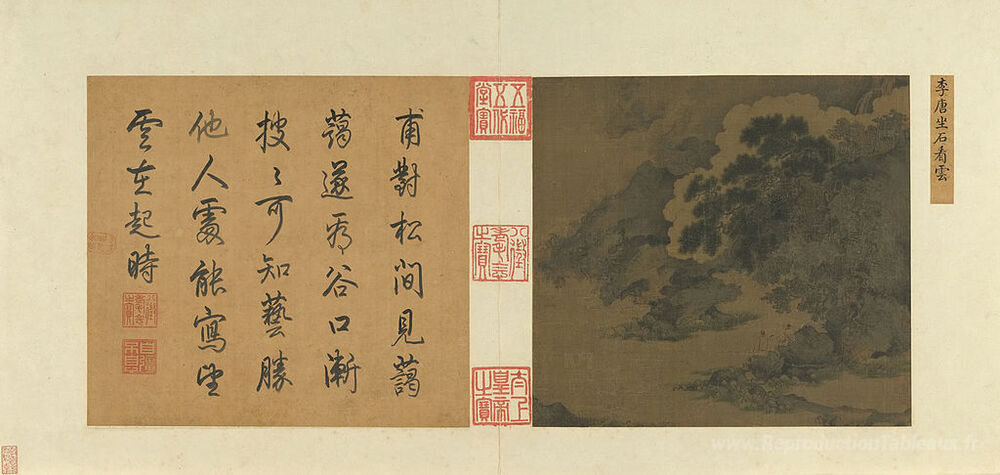 李唐坐石看雲
甫對松間見藹
藹遂為谷口漸
披〻可知藝勝
他人處能寫
雲在起時
五福五代堂寶
八徵耄念之寶
太上皇帝之寶
八徵耄念之寶
www.ReproductionTableaux.fr